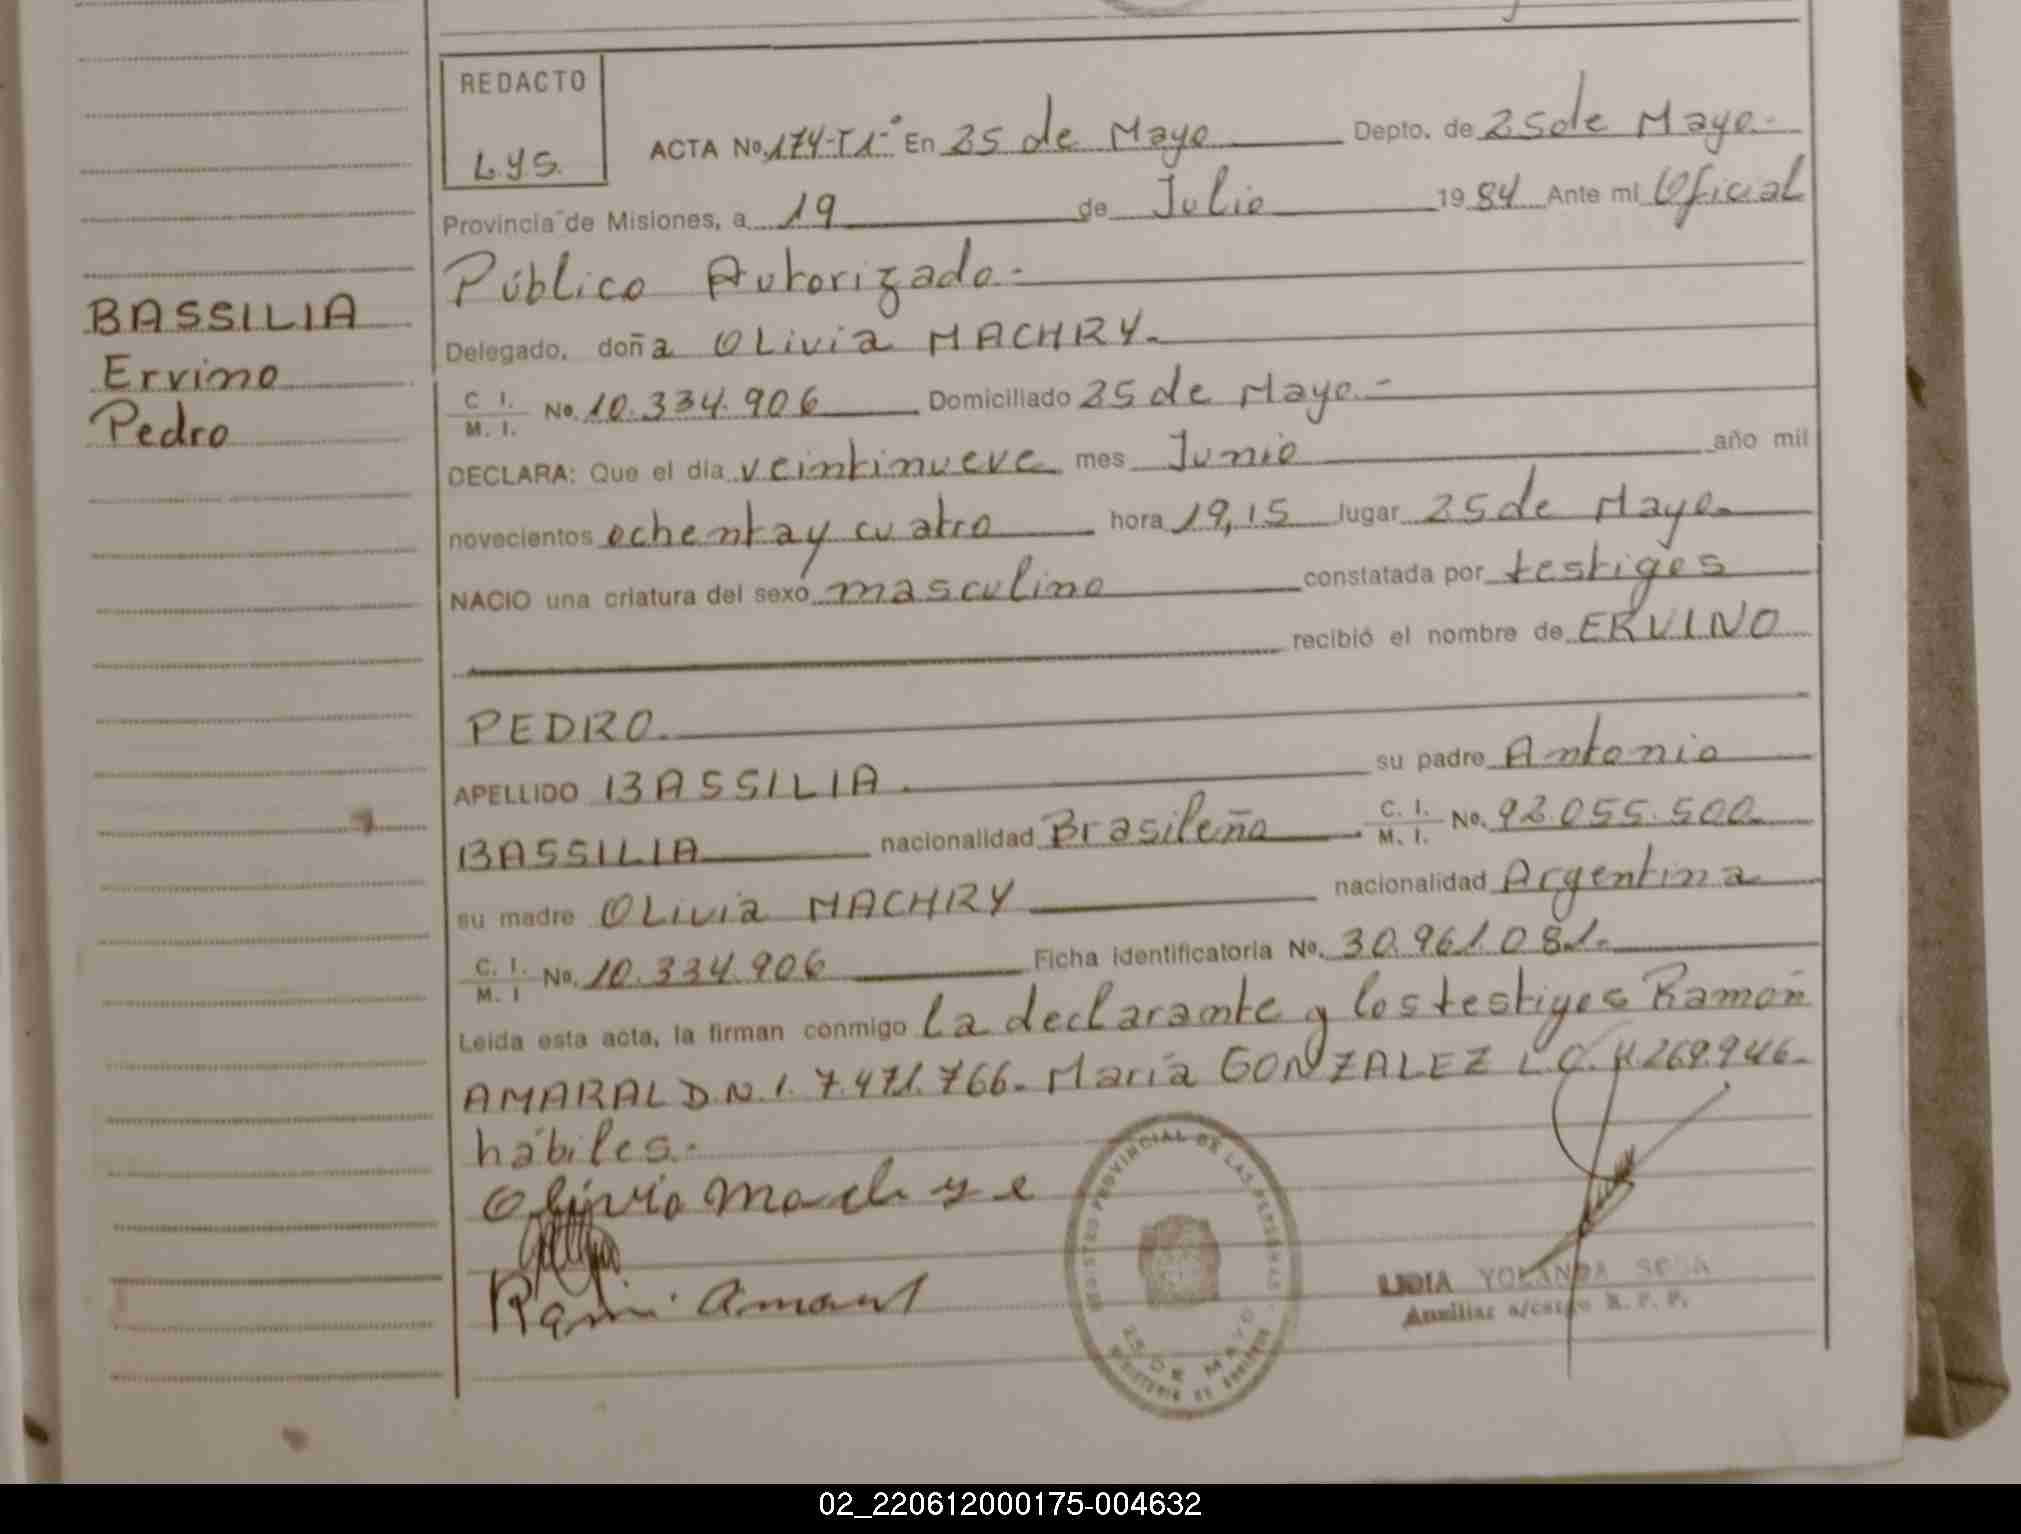 REDACTO
L.y.S.
ACTA No. 174-T1-° En 25 de Mayo Depto. de 25 de Mayo.-
Provincia de Misiones, a 19 de Julio 1984 Ante mi Oficial
Público Autorizado.-
BASSILIA
Ervino
Pedro
Delegado, doña Olivia MACHRY.
C. I. / M. I. No. 10.334.906 Domiciliado 25 de Mayo.-
DECLARA: Que el día veintinueve mes Junio año mil
novecientos ochenta y cuatro hora 19,15 lugar 25 de Mayo.
NACIO una criatura del sexo masculino constatada por testigos
recibió el nombre de ERVINO
PEDRO.
APELLIDO BASSILIA. su padre Antonio
BASSILIA nacionalidad Brasileña C. I. / M. I. No. 92.055.500.
su madre Olivia MACHRY nacionalidad Argentina
C. I. / M. I No. 10.334.906 Ficha identificatoria No. 30.961.081.
Leida esta acta, la firman conmigo la declarante y los testigos Ramón
AMARAL D.N.I. 7.471.766. María GONZALEZ L.C. 269.946.
hábiles.-
Olinvia Machye
Ramon Amaral
REGISTRO PROVINCIAL DE LAS PERSONAS
25 DE MAYO
MINISTERIO DE GOBIERNO
LIDIA YOLANDA SOSA
Auxiliar a/cargo R. P. P.
02_220612000175-004632